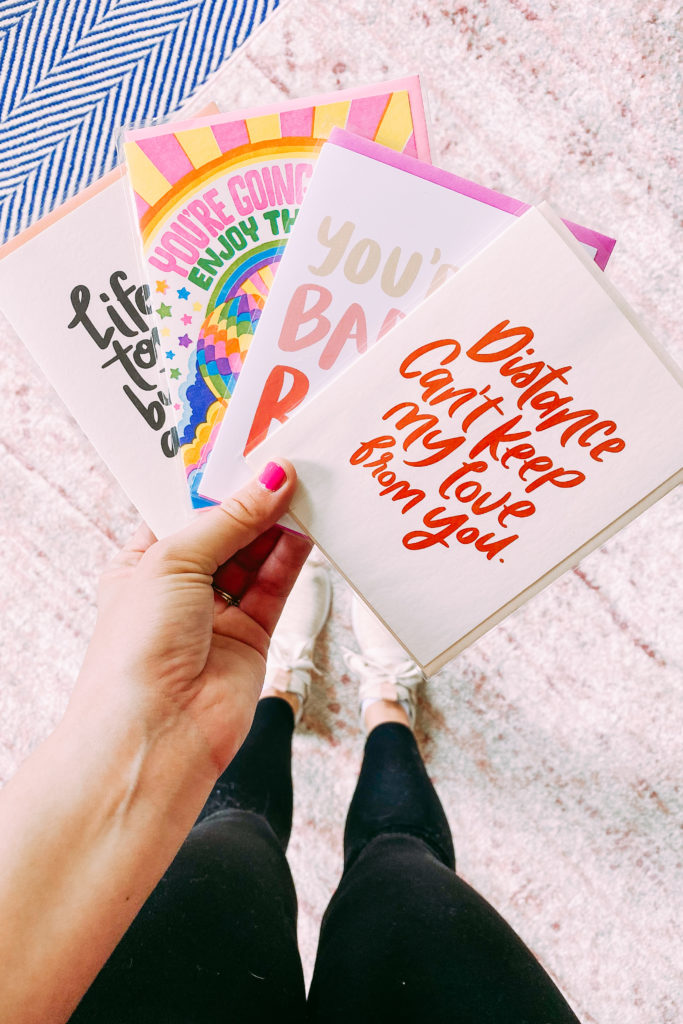 life
YOU'RE GOING
ENJOY
Distance
Can't keep
my love
from you.